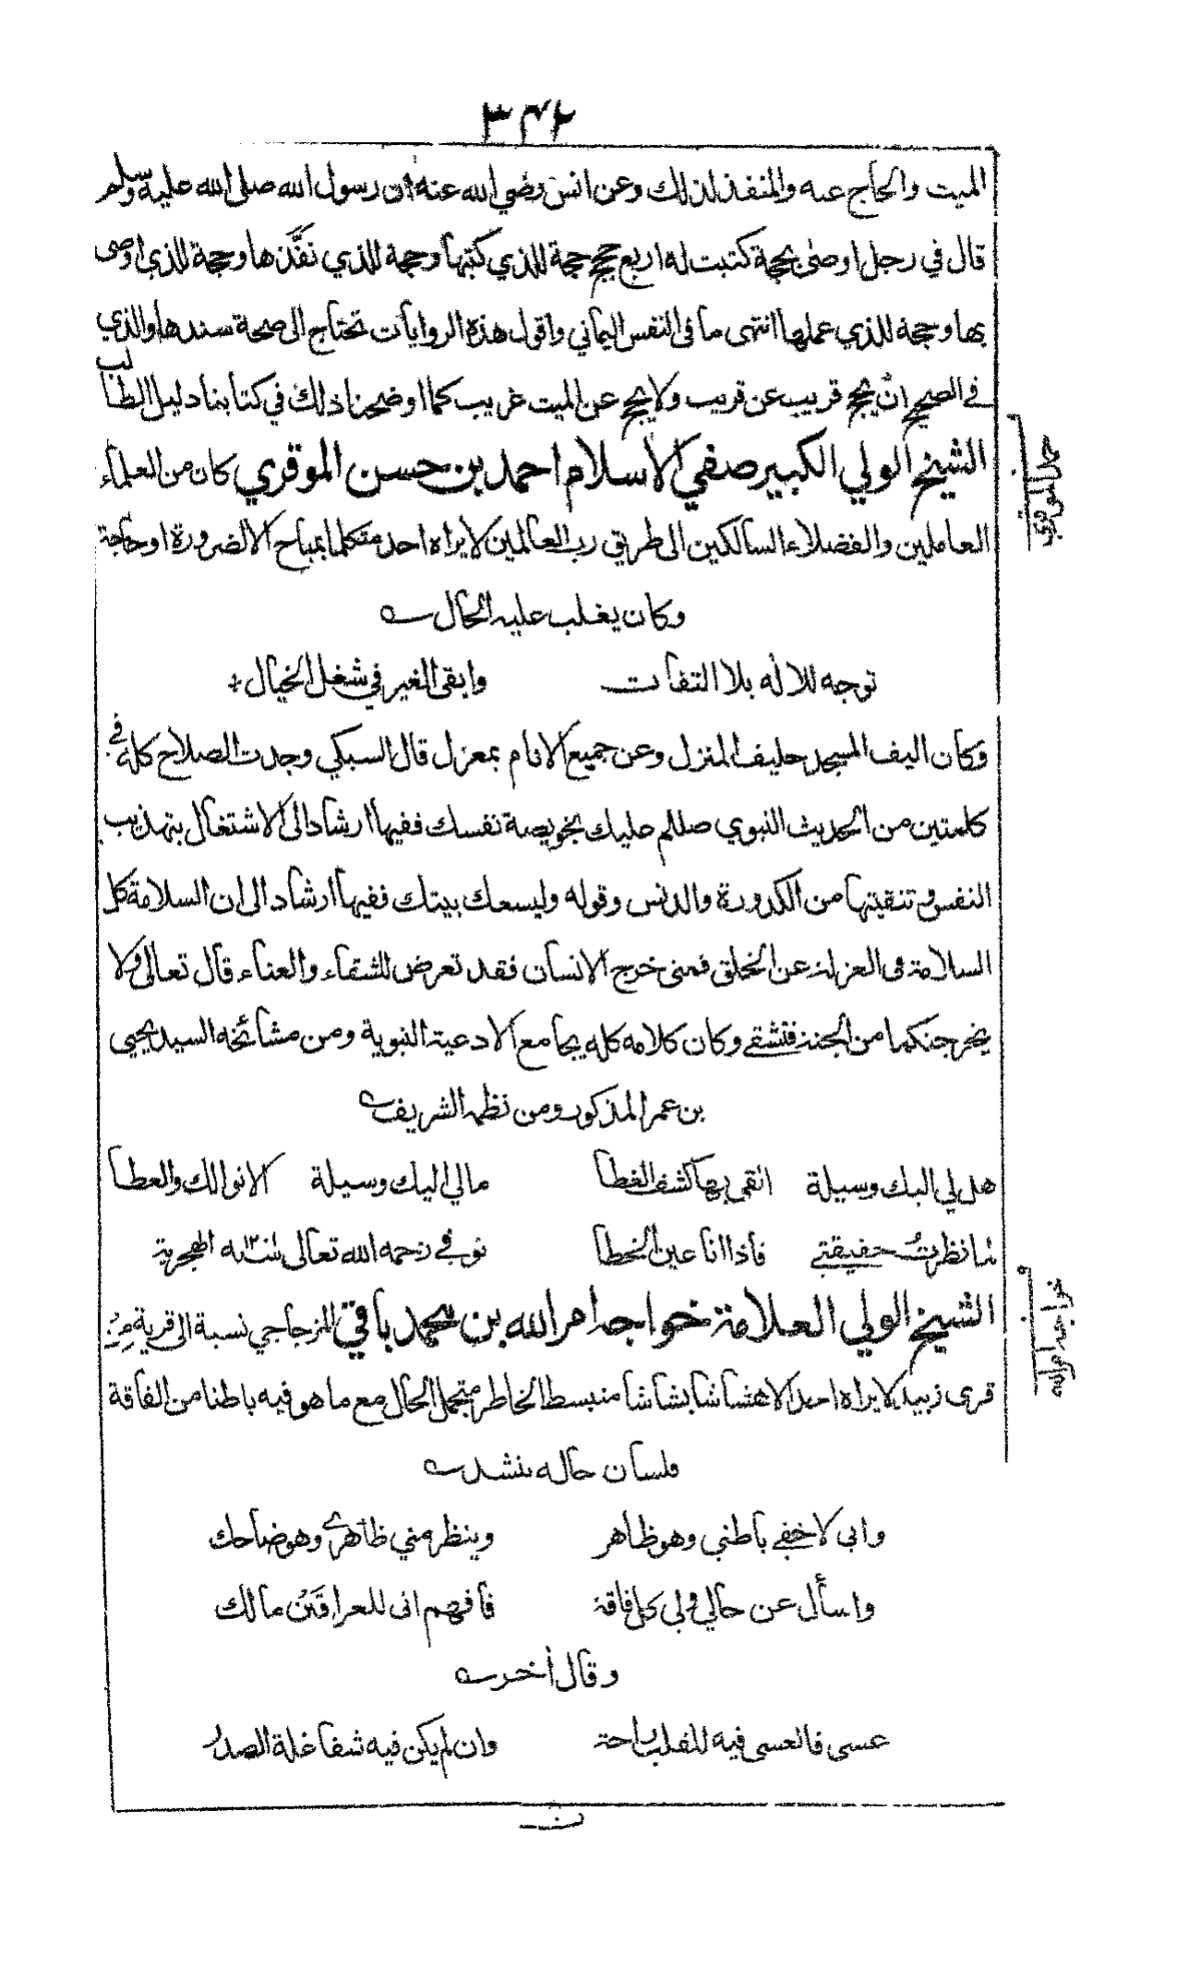 ٣٤٢
الميت والحاج عنه والمنفذ لذلك وعن انس رضي الله عنه ان رسول الله صلى الله عليه وسلم
قال في رجل اوصى بحجة كتبت له اربع حجج حجة للذي كتبها وحجة للذي نفَّذها وحجة للذي اوصى
بها وحجة للذي عملها انتهى ما فى النفس اليماني واقول هذة الروايات تحتاج الى صحة سندها والذي
في الصحيح ان يحج قريب عن قريب ولا يحج عن الميت غريب كما اوضحنا ذلك في كتابنا دليل الطالب
الشيخ الولي الكبير صفي الاسلام احمد بن حسن الموقري كان من العلماء
العاملين والفضلاء السالكين الى طريق رب العالمين لا يراه احد متكلما بمباح الا لضرورة او حاجة
وكان يغلب عليه الحال
توجه للاله بلا التفات وابقى الغير في شغل الخيال
وكان اليف المسجد حليف المنزل وعن جميع الانام بمعزل قال السبكي وجدت الصلاح كله في
كلمتين من الحديث النبوي صللم عليك بخويصة نفسك ففيها ارشاد الى الاشتغال بتهذيب
النفس وتنقيتها من الكدورة والدنس وقوله وليسعك بيتك ففيها ارشاد الى ان السلامة كل
السلامة فى العزلة عن الخلق فمتى خرج الانسان فقد تعرض للشقاء والعناء قال تعالى ولا
يخرجنكما من الجنة فتشقى وكان كلامه كله بجامع الادعية النبوية ومن مشائخه السيد يحيى
بن عمر المذكور ومن نظمه الشريف
هل لي اليك وسيلة القى بها كشف الغطا مالي اليك وسيلة الا نوالك والعطا
لما نظرت حقيقتي فاذا انا عين الخطا توفي رحمه الله تعالى سنة الهجرية
الشيخ الولي العلامة خواجه امر الله بن محمد باقي المزجاجي نسبة الى قرية من
قرى زبيد لا يراه احد الا هشاشا بشاشا منبسط الخاطر متجمل الحال مع ما هو فيه باطنا من الفاقة
ولسان حاله ينشد
وانى لاخفي باطني وهو ظاهر وينظر مني ظاهري وهو ضاحك
واسأل عن حالي ولى كل فاقة فافهم انى للعراقَين مالك
وقال آخر
عسى فالعسى فيه للقلب راحة وان لم يكن فيه شفا غلة الصدر
خواجه امر الله